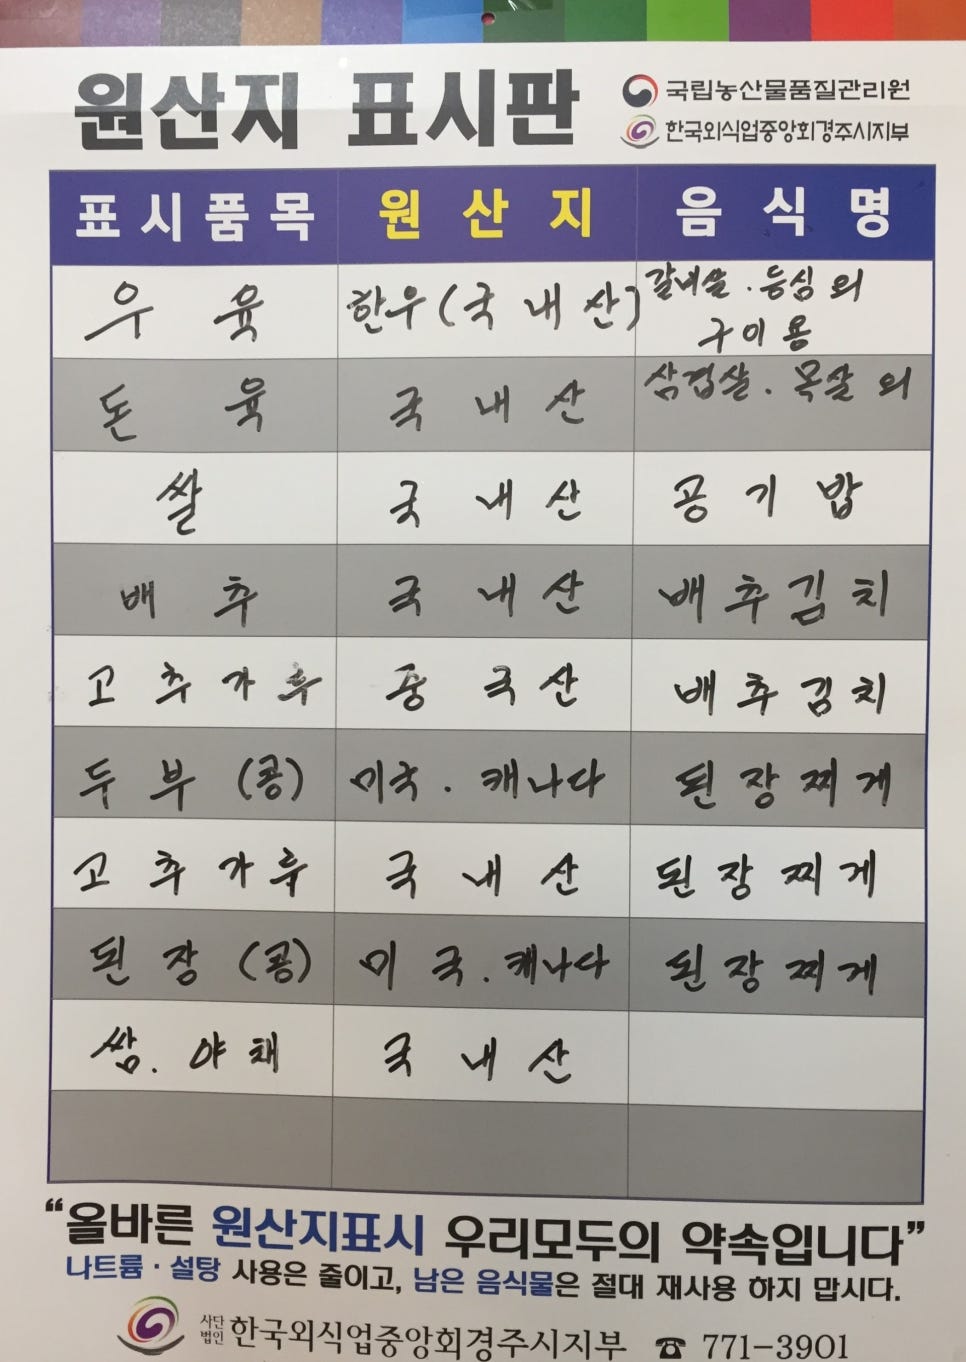 원산지 표시판
국립농산물품질관리원
한국외식업중앙회경주시지부
표시품목 원산지 음식명
우육 한우(국내산) 갈비살.등심 외
구이용
돈육 국내산 삼겹살. 목살 외
쌀 국내산 공기밥
배추 국내산 배추김치
고추가루 중국산 배추김치
두부(콩) 미국. 캐나다 된장찌게
고추가루 국내산 된장찌게
된장(콩) 미국. 캐나다 된장찌게
쌈. 야채 국내산
“올바른 원산지표시 우리모두의 약속입니다”
나트륨·설탕 사용은 줄이고, 남은 음식물은 절대 재사용 하지 맙시다.
사단
법인 한국외식업중앙회경주시지부 ☎ 771-3901